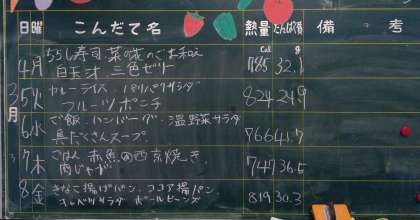 日 曜 こんだて名 熱量 たんぱく質 備 考
Cal g
3月
4 月 ちらし寿司 菜の花のごま和え 785 32.1
白玉汁 三色ゼリー
5 火 カレーライス パリパリサラダ 824 24.9
フルーツポンチ
6 水 ご飯 ハンバーグ 温野菜サラダ 766 41.7
具だくさんスープ
7 木 ごはん 赤魚の西京焼き 747 36.5
肉じゃが
8 金 きなこ揚げパン ココア揚パン 819 30.3
キャベツサラダ ポークビーンズ